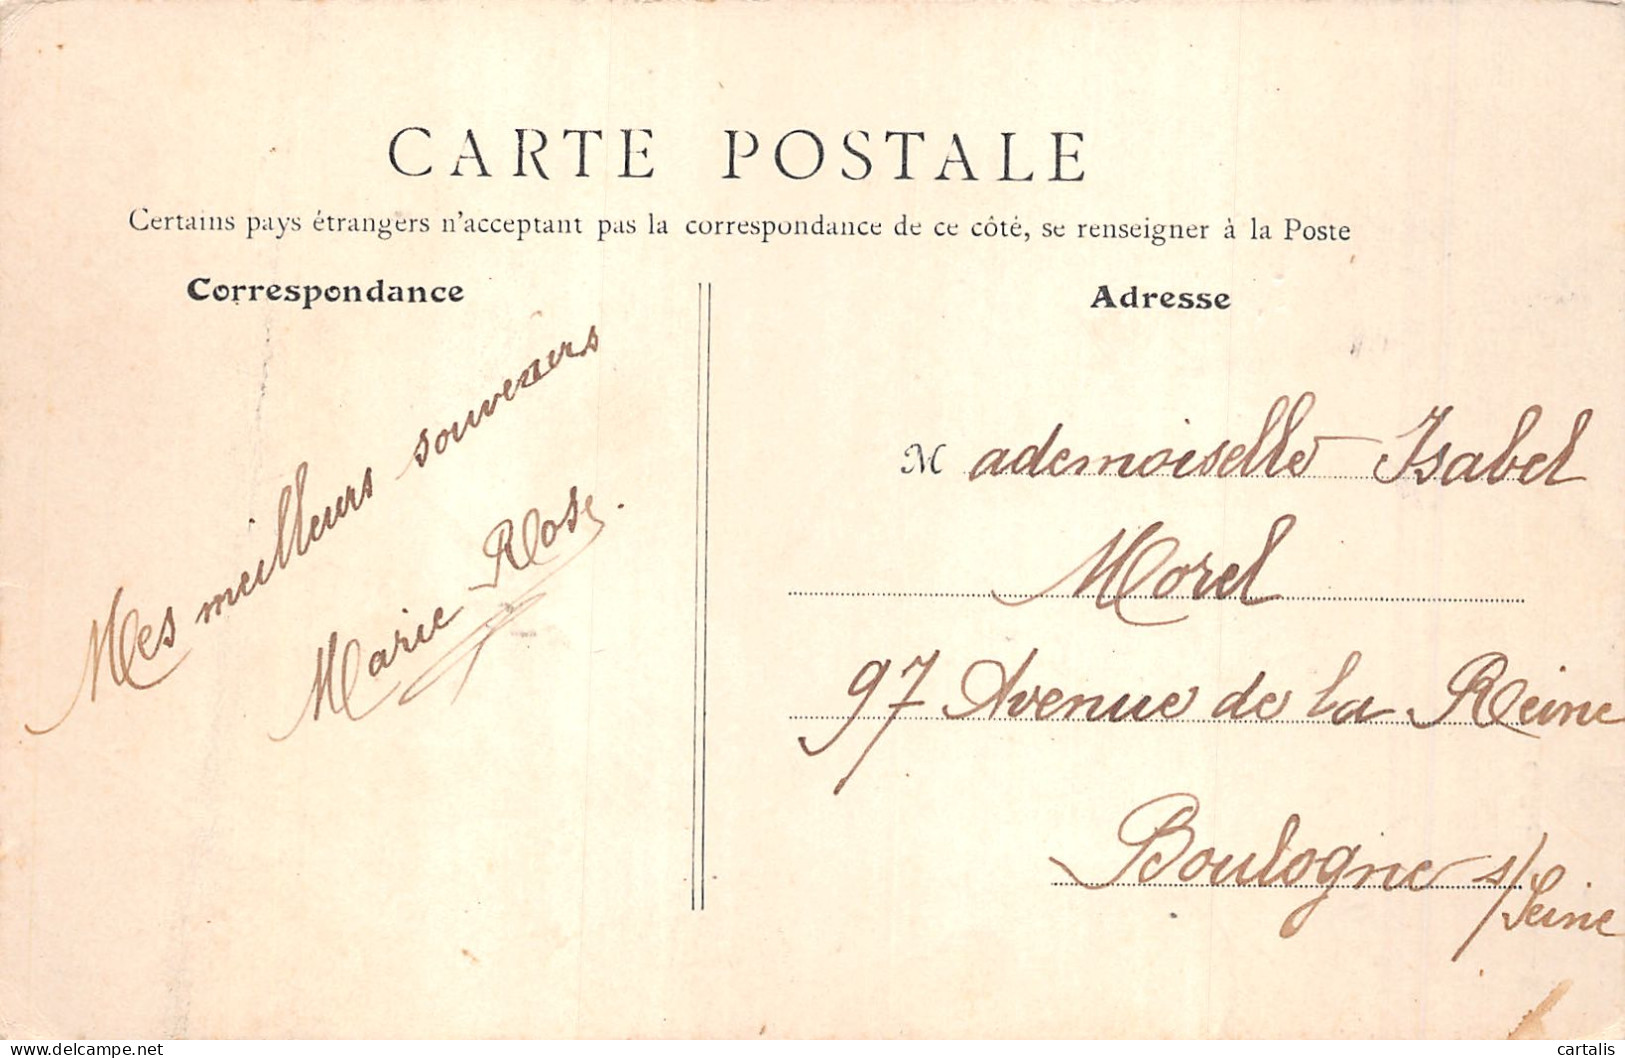 CARTE POSTALE
Certains pays étrangers n'acceptant pas la correspondance de ce côté, se renseigner à la Poste
Correspondance
Mes meilleurs souvenirs
Marie-Rose.
Adresse
Mademoiselle Isabel
Morel
97 Avenue de la Reine
Boulogne s/Seine
delcampe.net
cartalis